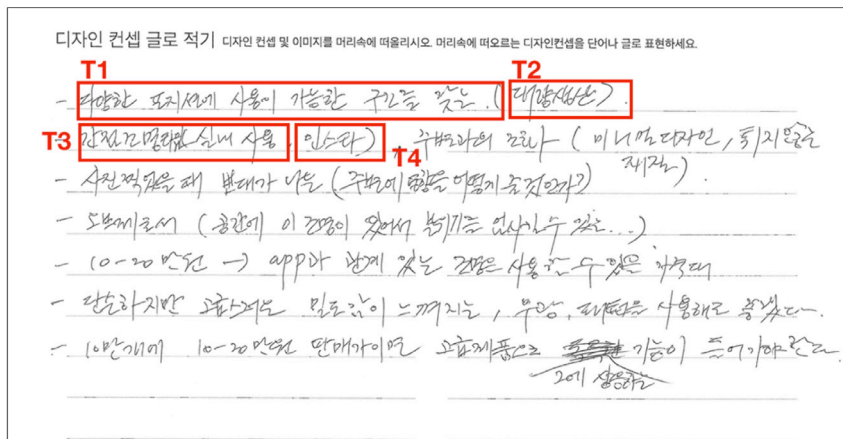 디자인 컨셉 글로 적기 디자인 컨셉 및 이미지를 머리속에 떠올리시오. 머리속에 떠오르는 디자인컨셉을 단어나 글로 표현하세요.
T1 T2
- 다양한 포지션에 사용이 가능한 구조를 갖는. (대량생산).
T3 실내 사용. 인스타) T4 주변과의 조화 (미니멀디자인, 튀지않는 재질)
- 사진찍었을때 분대가 나는 (주변에 영향을 어떻게 줄것인가?)
- 오브제로서 (공간에 이 조명이 있어서 분위기를 살수 있는...)
- 10-20만원 → app과 관계 있는 조명은 사용할 수 있을 가격대
- 단순하지만 고급스러운 밀도감이 느껴지는, 무광, 패턴을 사용해도 좋겠다.
- 10만개에 10-20만원 판매가이면 고급제품으로 기능이 들어가야 한다.
그에 상응하는